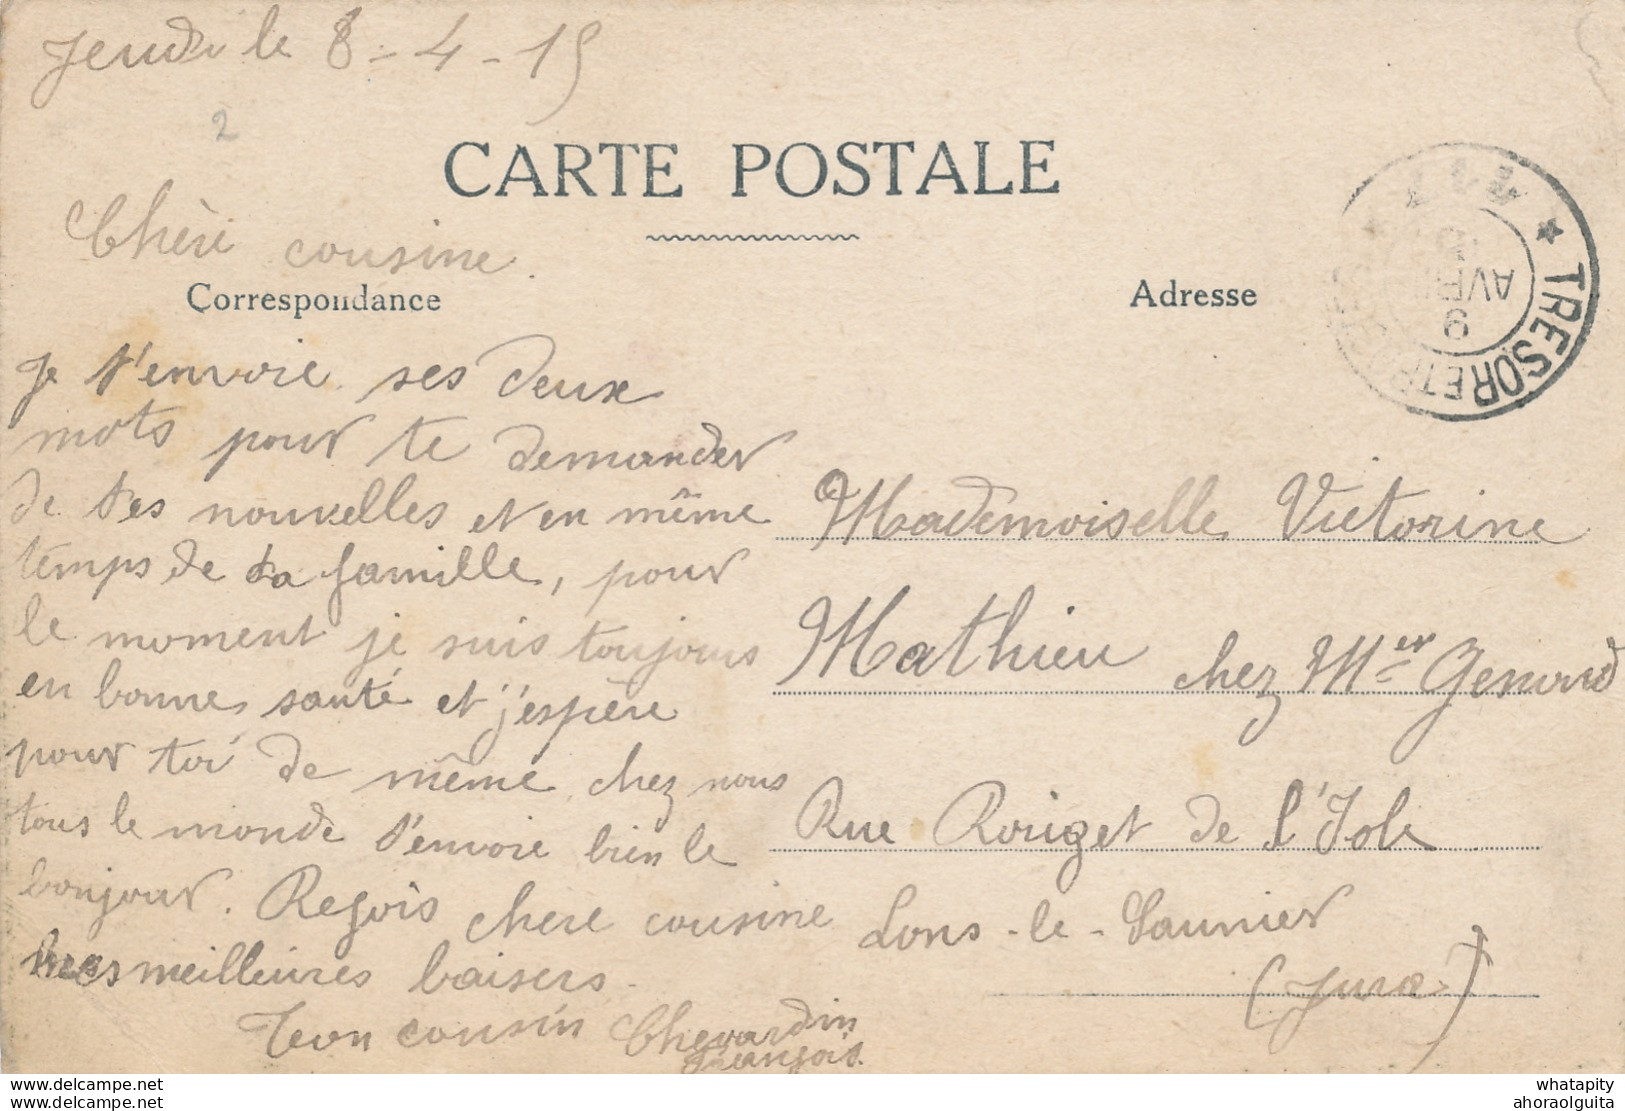 Jeudi le 8-4-15
2
CARTE POSTALE
Chère cousine.
Correspondance
Je t'envoie ses deux
mots pour te demander
de tes nouvelles et en même
temps de ta famille, pour
le moment je suis toujours
en bonne santé et j'espère
pour toi de même chez nous
tous le monde t'envoie bien le
bonjour. Reçois chere cousine
mes meilleures baisers.
Ton cousin Chevardin
François.
Adresse
TRESOR ET POSTES
9
AVRIL
15
Mademoiselle Victorine
Mathieu chez Mer
Rue Rouget de l'Isle
Lons-le-Saunier
(Jura)
www.delcampe.net
www.delcampe.net
whatapity
ahoraolguita